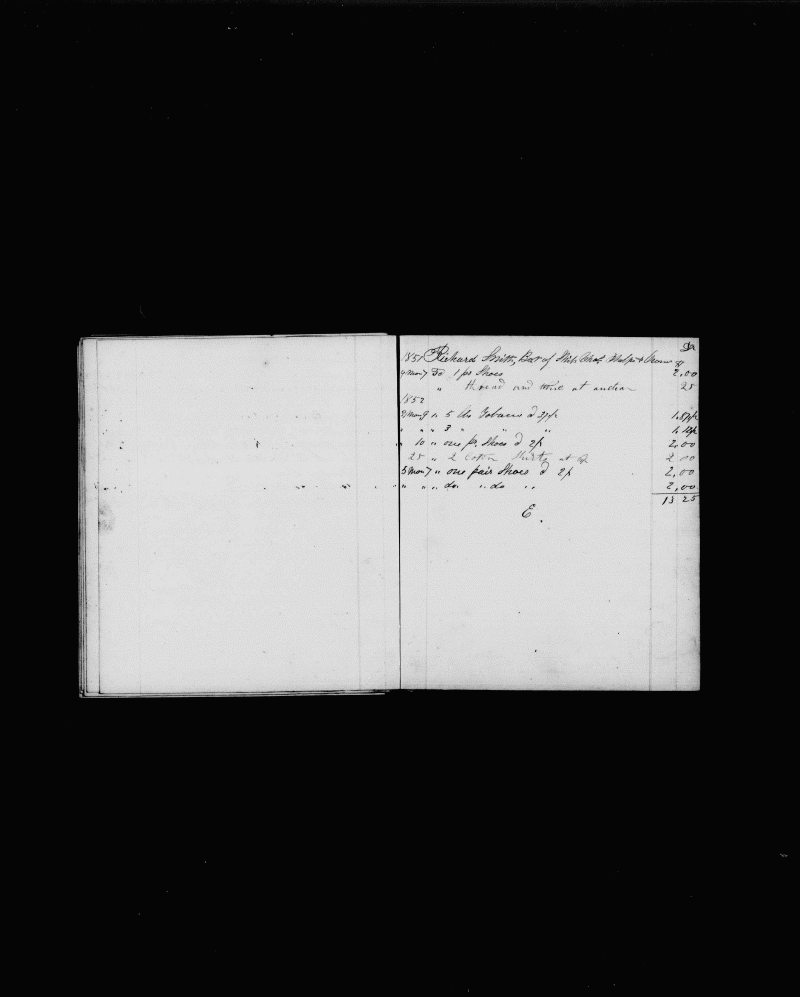 Dr
1851 Richard Smith, Bot of Ship Chas Phelps & Owners $
4 Mon 7 To 1 pr Shoes 2,00
" thread and at auction 25
1852
2 Mon 9 " 5 lbs Tobacco @ 37½ 1.87½
" " " 3 " " " 1.12½
" 10 " one pr Shoes @ 2/ 2,00
25 " 2 Cotton Shirts at 2 00
5 Mon 7 " one pair Shoes @ 2/ 2,00
" " " do " do " 2,00
13 25
E.